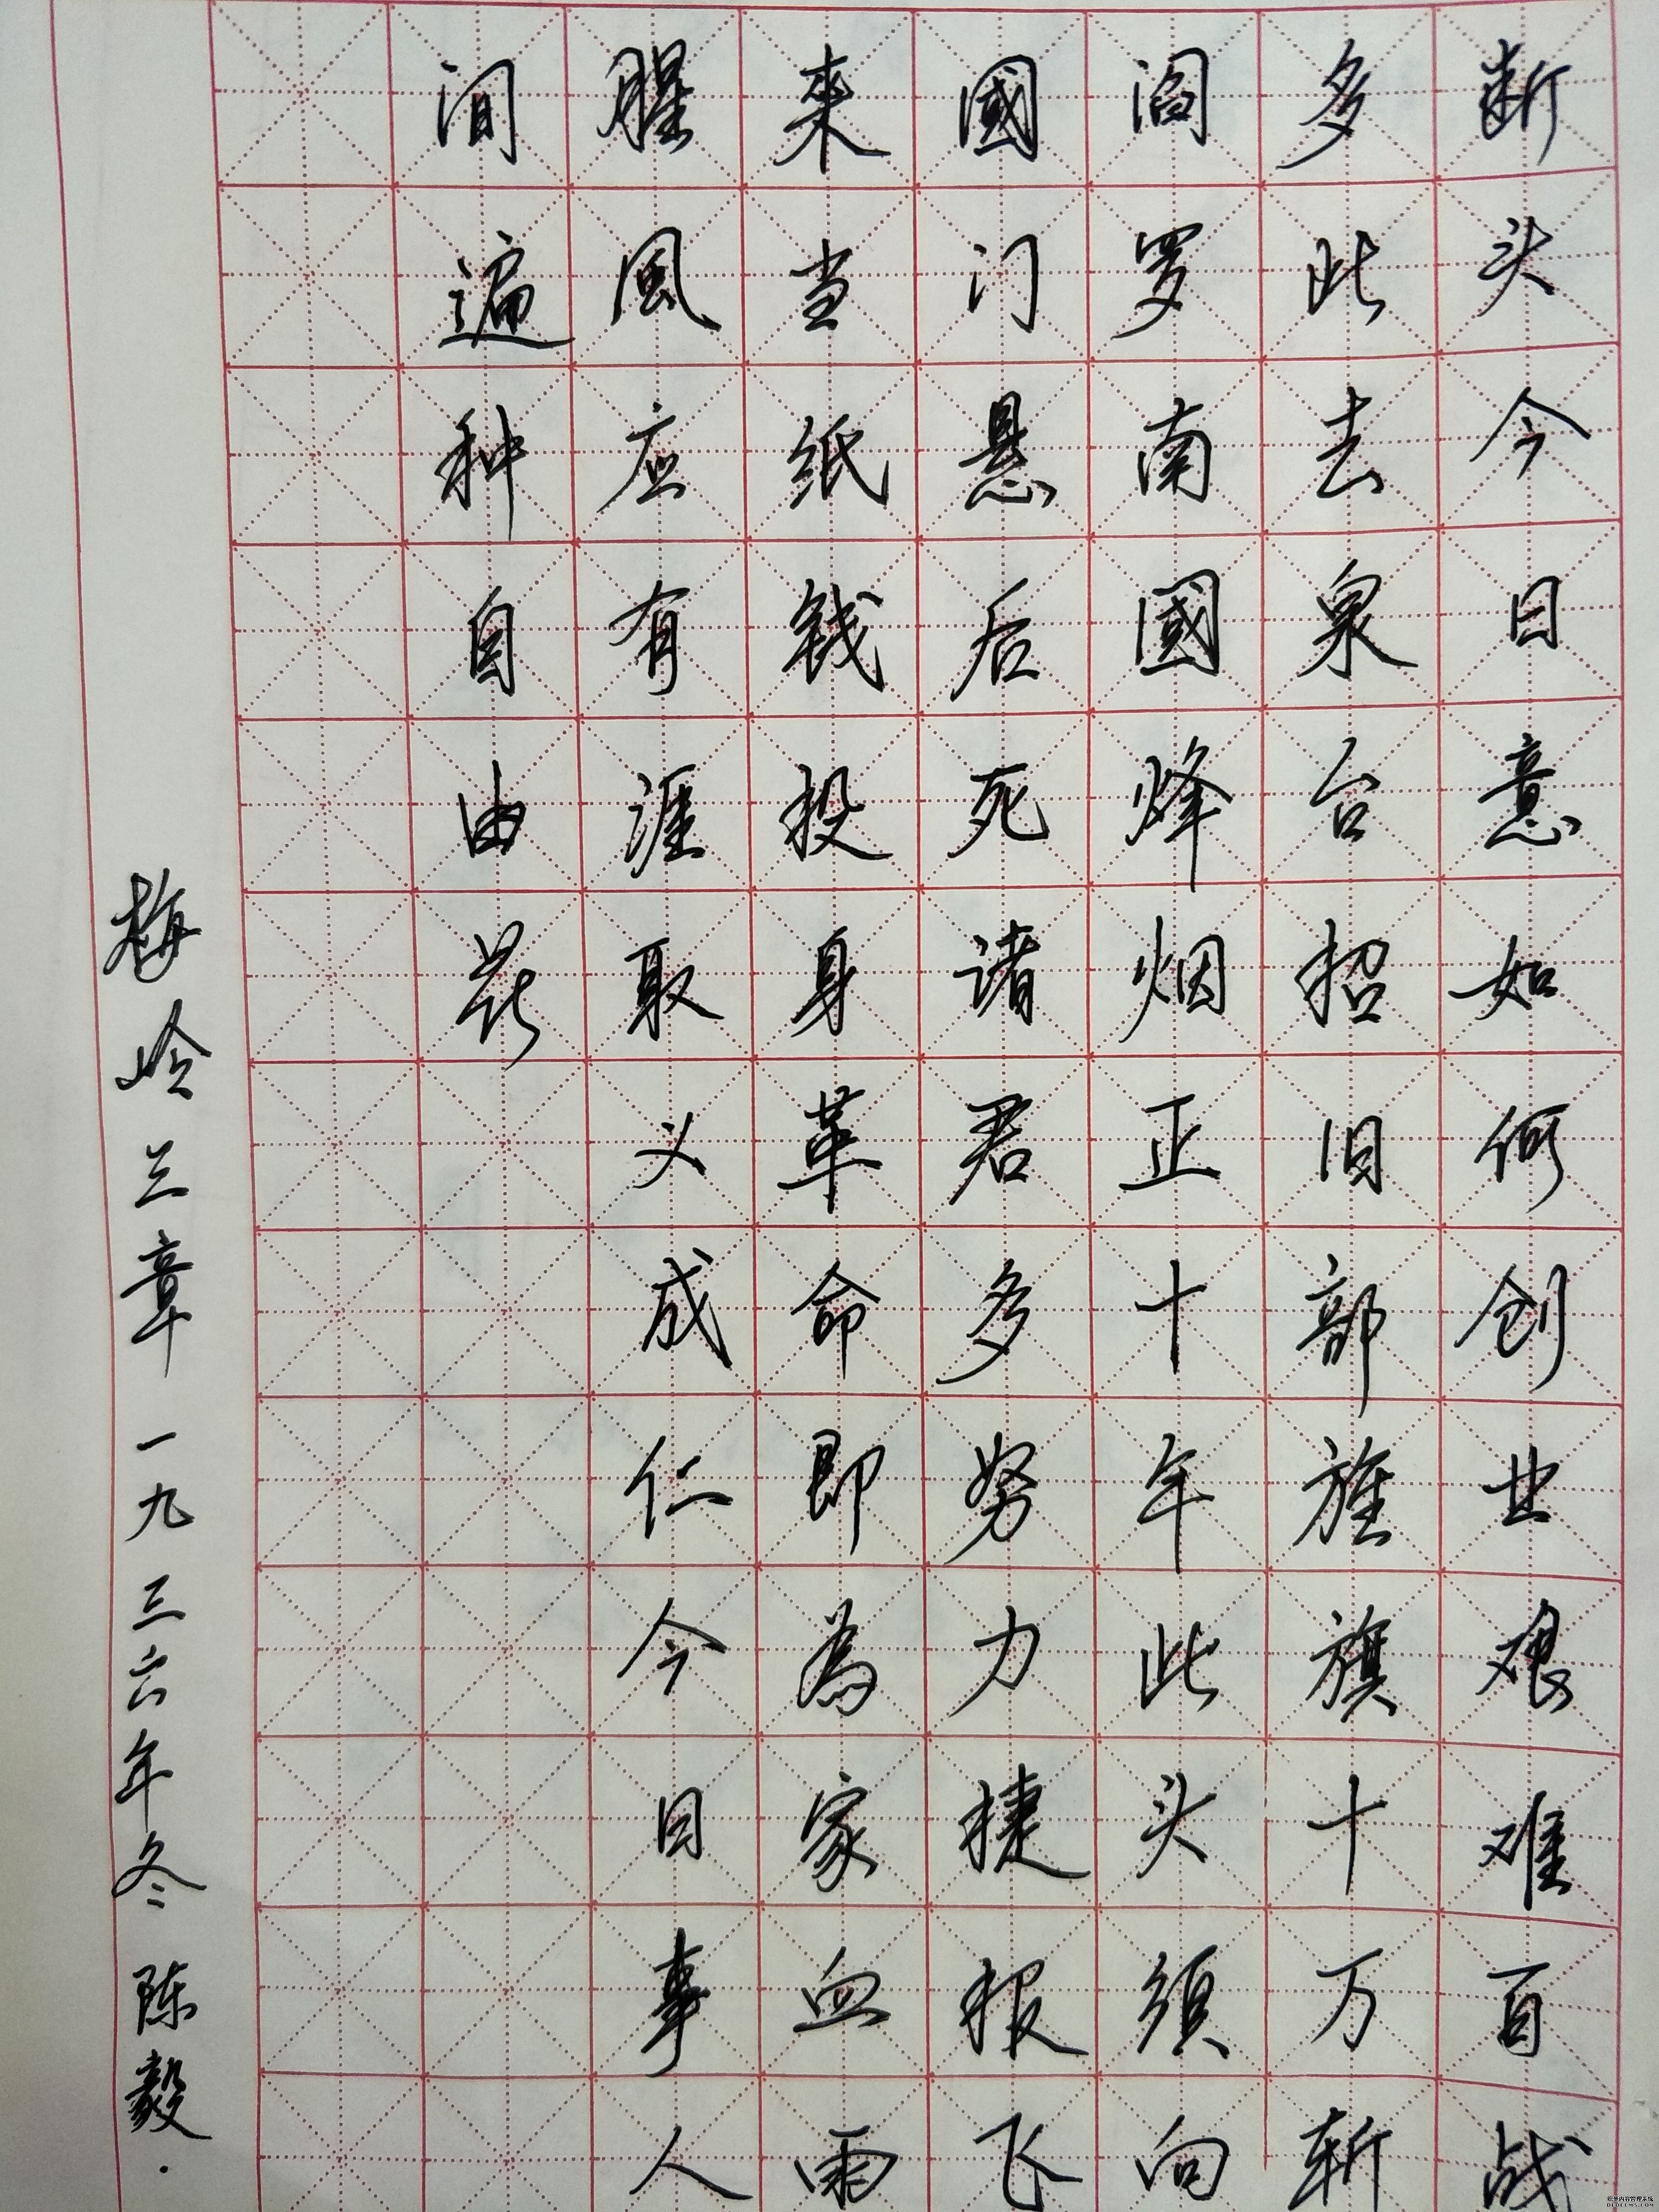 断头今日意如何创业艰难百战
多此去泉台招旧部旌旗十万斩
阎罗南國烽烟正十年此头须向
國门悬后死诸君多努力捷报飞
来当纸钱投身革命即為家血雨
腥風应有涯取义成仁今日事人
间遍种自由花
梅岭三章 一九三六年冬 陈毅.
织梦内容管理系统
DEDECMS.COM